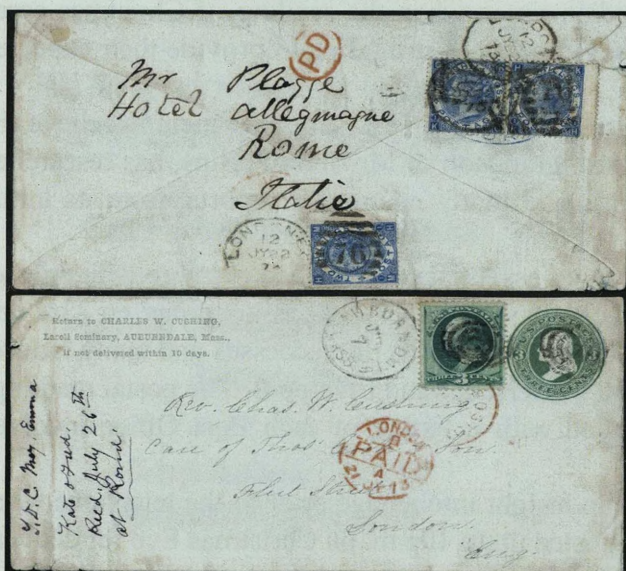 LONDON
12
PD
Mr Plagge
Hotel allegmagne
Rome
Italie
LONDON-E.C
12
JY 22
76
Return to CHARLES W. CUSHING,
Lasell Seminary, AUBURNDALE, Mass.,
if not delivered within 10 days.
AUBURNDALE
MASS
U.S. POSTAGE
THREE CENTS
Rev. Chas. W. Cushing
Care of Thos Son.
Fleet Street
London
Eng
LONDON
PAID
21 JY 73
Kate & Fred.
Recd. July 26th
at Rome.